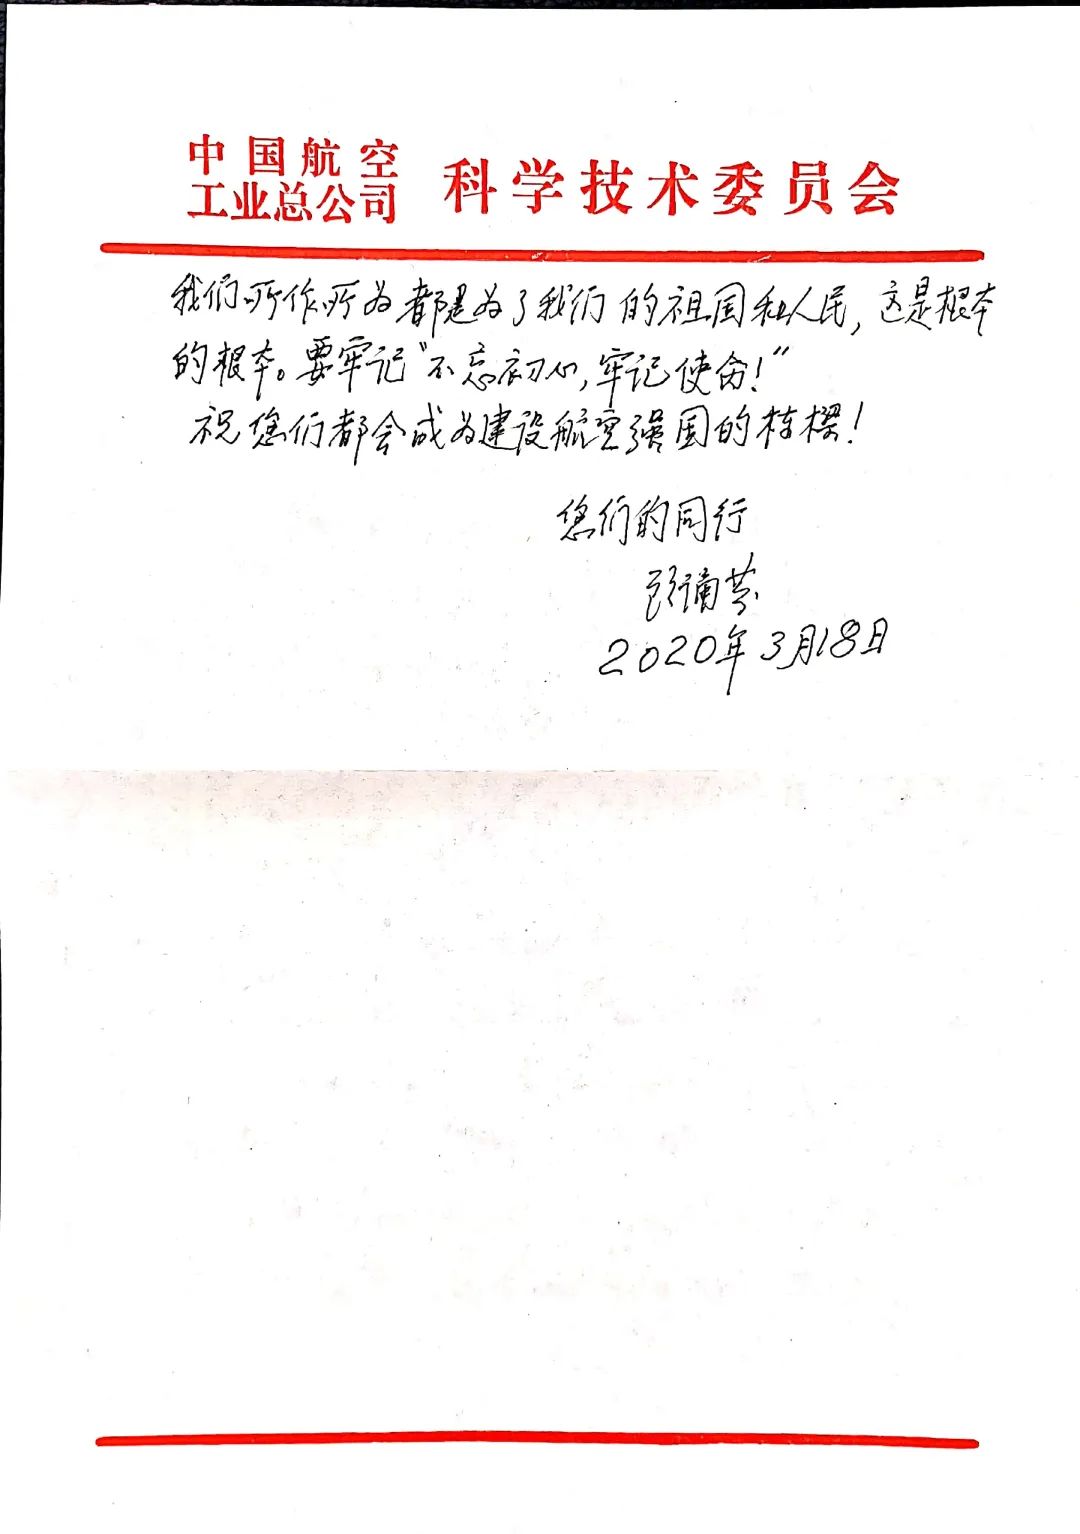 中国航空
工业总公司
科学技术委员会
我们所作所为都是为了我们的祖国和人民，这是根本
的根本。要牢记“不忘初心，牢记使命！”
祝您们都会成为建设航空强国的栋梁！
您们的同行
顾诵芬
2020年3月18日